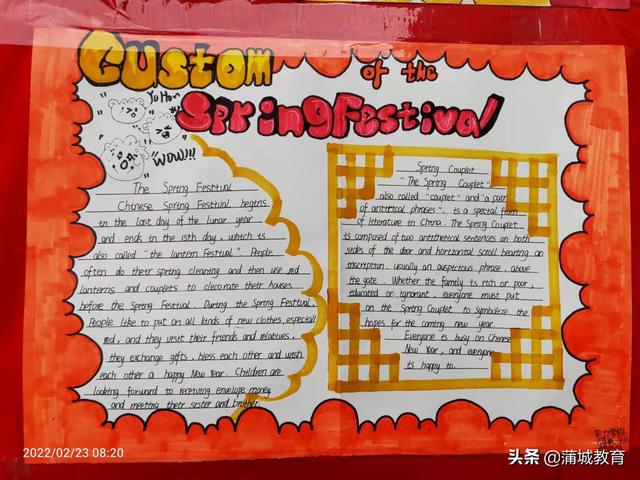 Custom of the
Spring Festival
"Yu Hou"
"WOW!!!
The Spring Festival
Chinese Spring Festival begins
in the last day of the lunar year
and ends in the 15th day, which is
also called "the Lantern Festival". People
often do their spring cleaning and then use red
lanterns and couplets to decorate their houses
before the Spring Festival. During the Spring Festival,
People like to put on all kinds of new clothes, especiall
red, and they visit their friends and relatives.
they exchange gifts, bless each other and wish
each other a happy New Year. Children are
looking forward to receiving envelope money
and meeting their sister and brother.
Spring Couplet
"The Spring Couplet",
also called "couplet" and "a pair
of antithical phrases", is a special form
of literature in China. The Spring Couplet
is composed of two antithetical sentences on both
sides of the door and horizontal scroll bearing an
inscription, usually an auspicious phrase, above
the gate. Whether the family is rich or poor,
educated or ignorant, everyone must put
on the Spring Couplet to symbolize the
hopes for the coming new year.
Everyone is busy on Chinese
New Year, and everyone
is happy to.
2022/02/23 08:20
头条 @蒲城教育